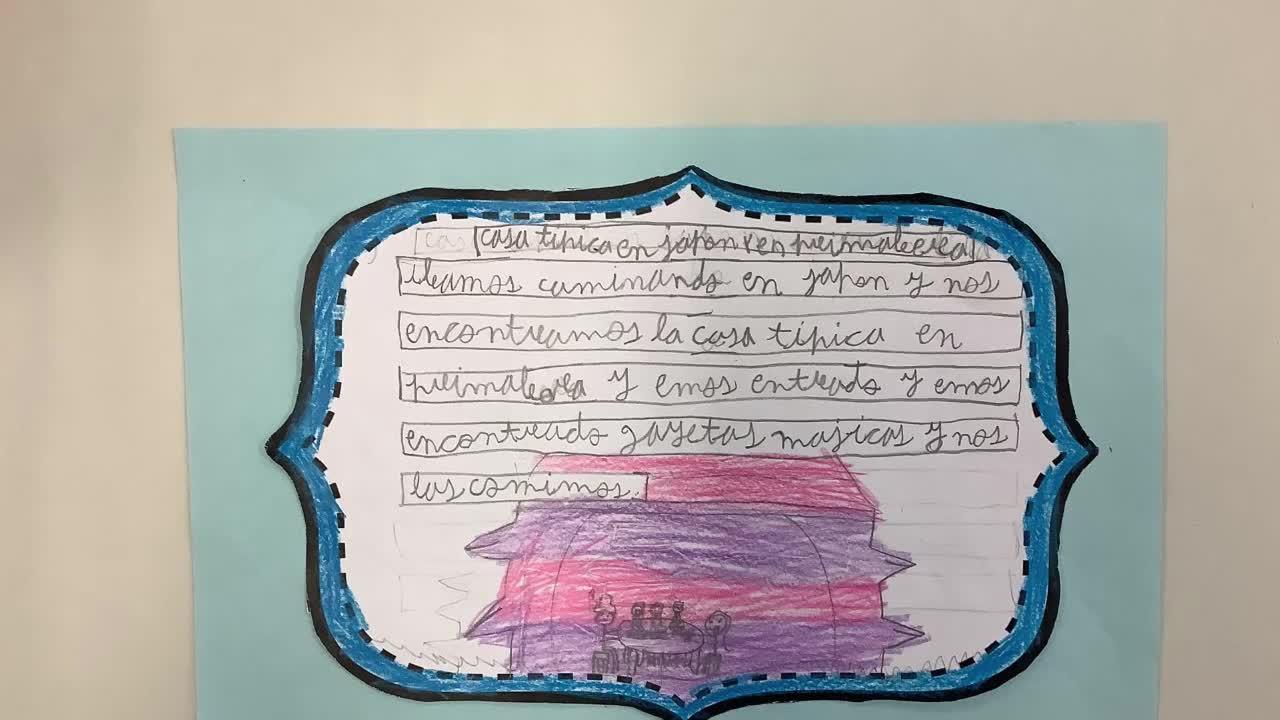 casa típica en japon y en primalerea
ibamos caminando en japon y nos
encontramos la casa típica en
primalerea y emos entrado y emos
encontrado gayetas majicas y nos
las comimos.